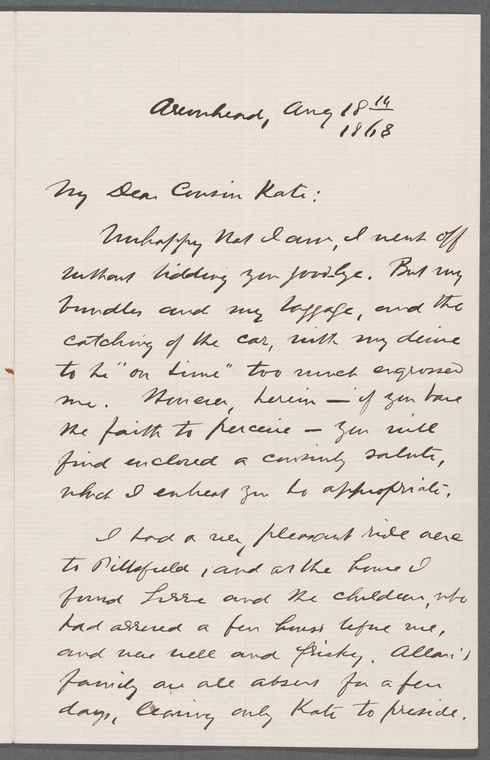 Arrowhead, Aug 18th
1868
My Dear Cousin Kate:
Unhappy that I am, I went off
without bidding you goodbye. But my
bundles and my luggage, and the
catching of the car, with my desire
to be "on time" too much engrossed
me. However, herein — if you have
the faith to perceive — you will
find enclosed a cousinly salute,
which I entreat you to appropriate.
I had a very pleasant ride over
to Pittsfield; and at the house I
found Lizzie and the children, who
had arrived a few hours before me,
and were well and frisky. Allan's
family are all absent for a few
days, leaving only Kate to preside.